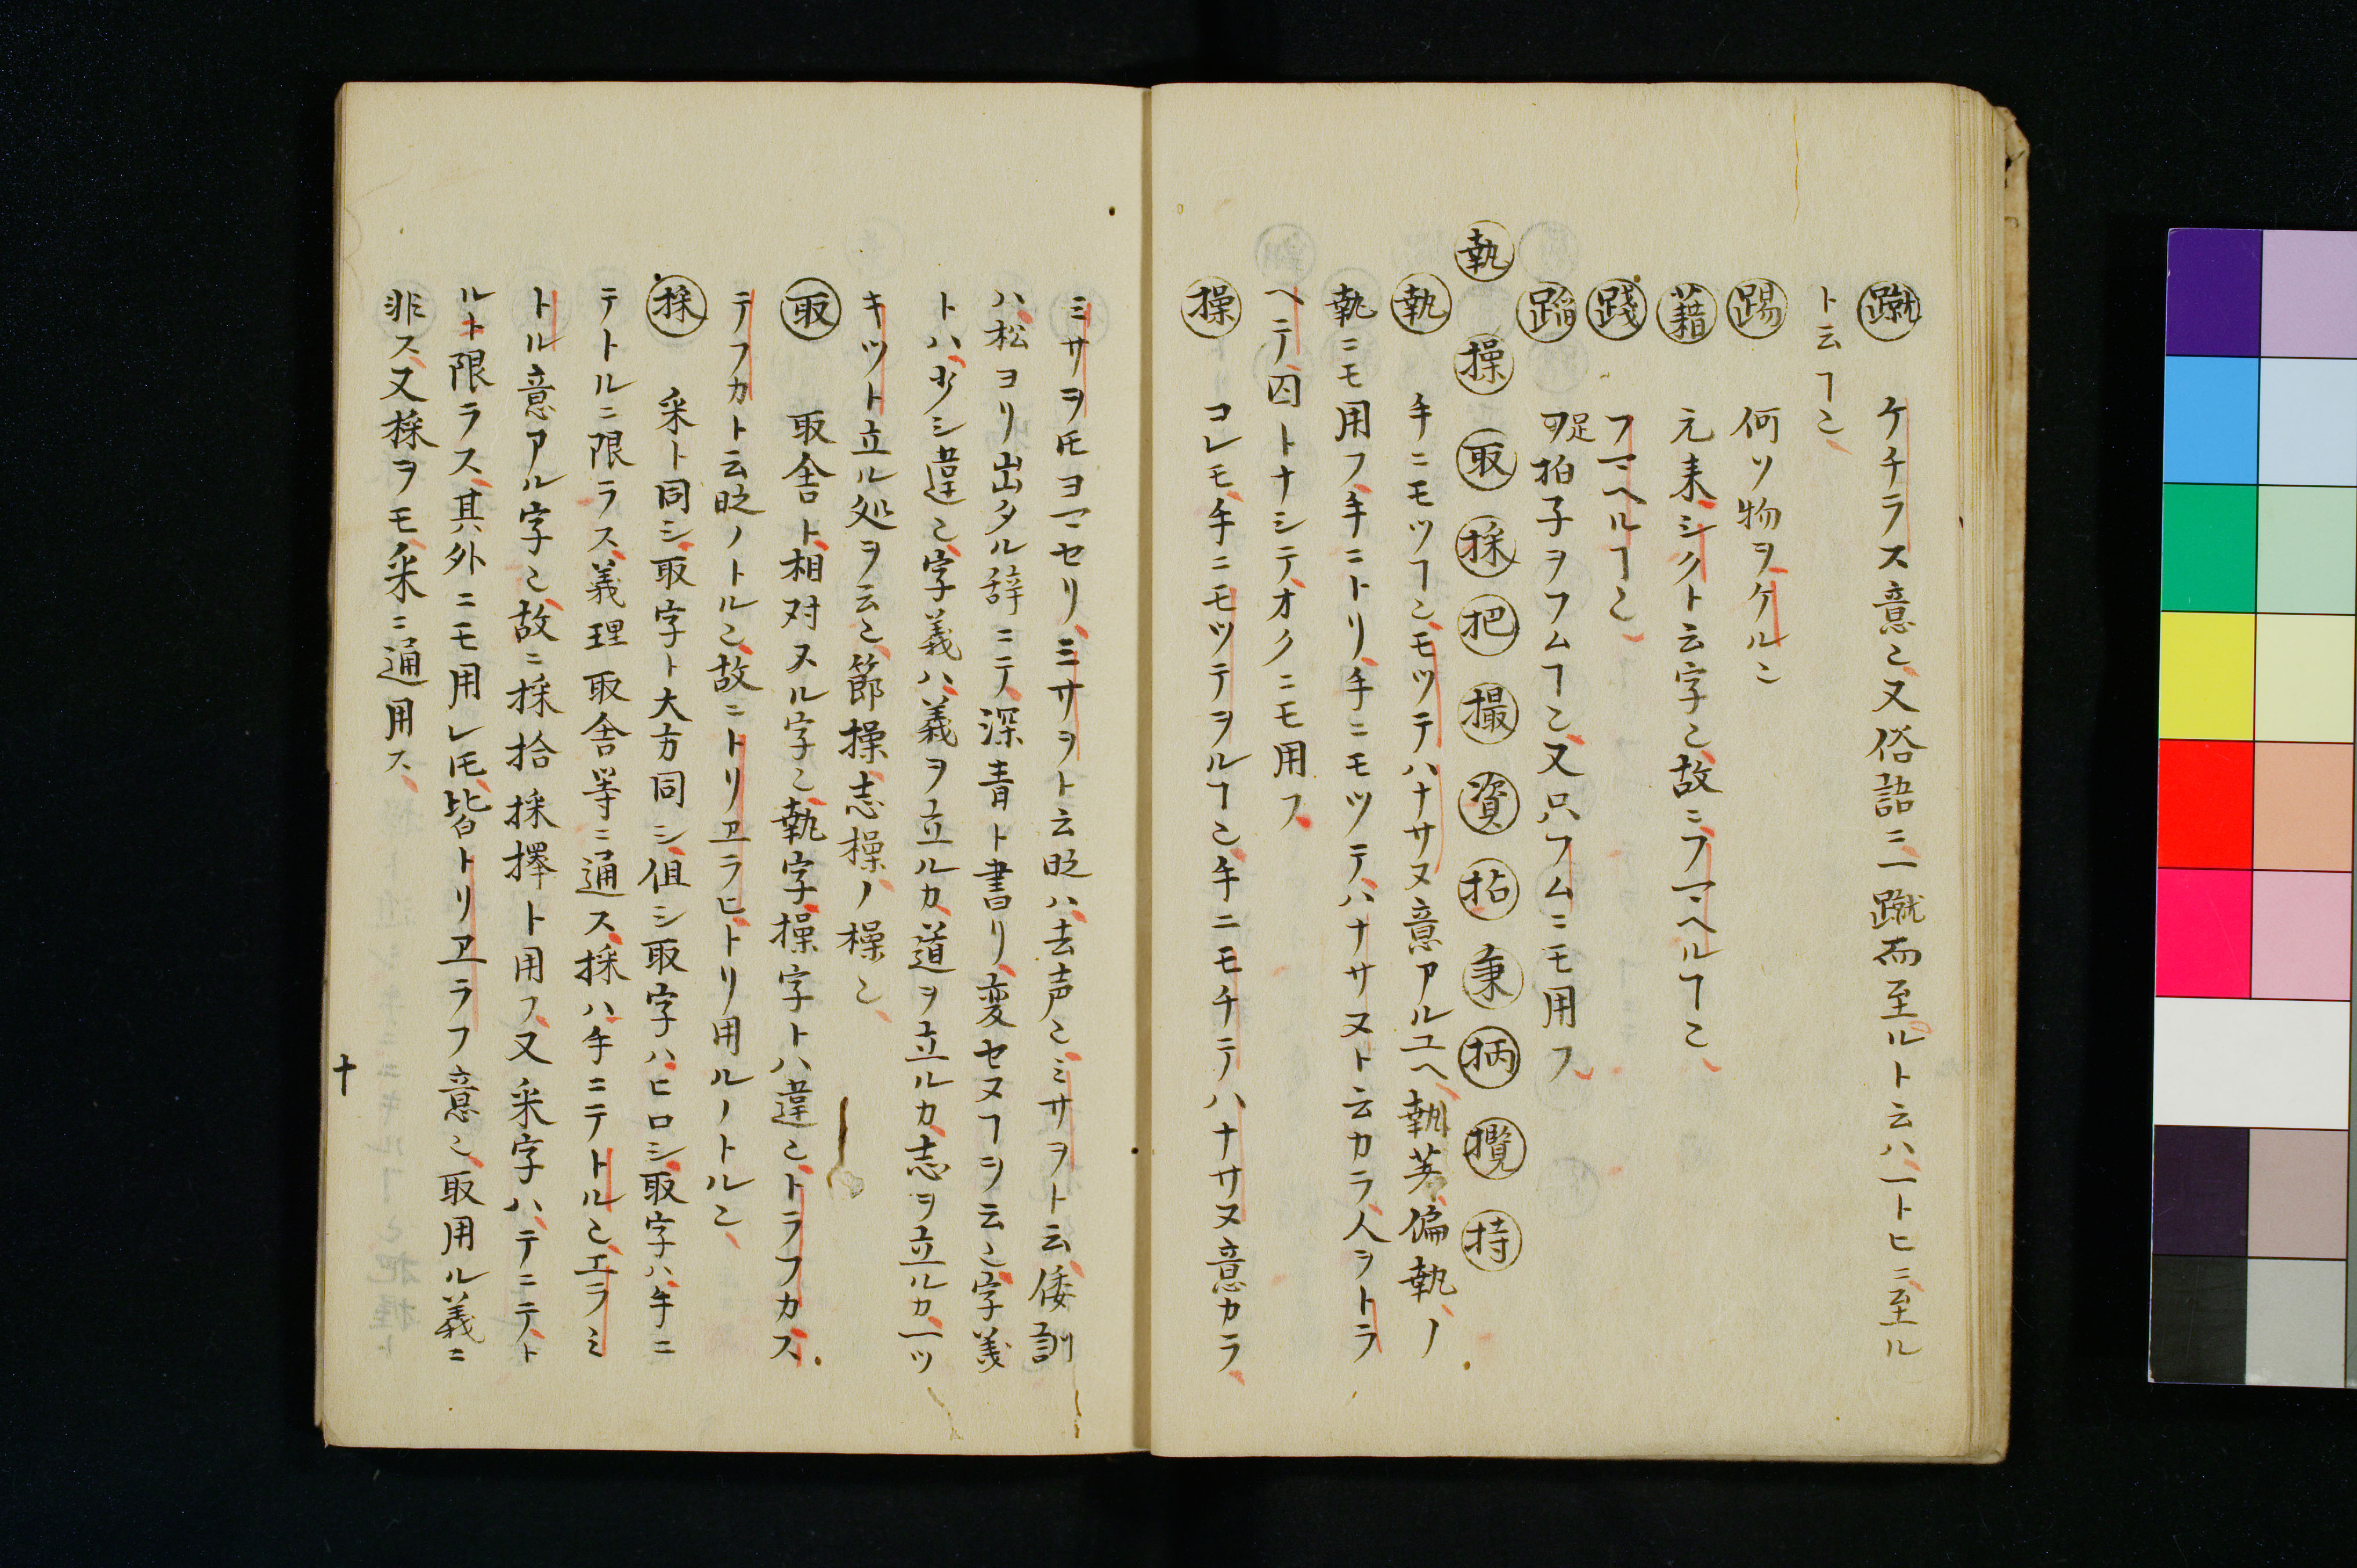 蹴 ケチラス意也又俗語ニ一蹴而至ルト云ハ一トヒニ至ル
トヿ云也
踢 何ソ物ヲケル也
藉 元来シクト云字也故ニフマヘルヿ也
踐 フマヘルヿ也
蹈 足ヲ拍子ヲフムヿ也又只フムニモ用フ
執 操 取 採 把 撮 資 拈 秉 柄 攬 持
執 手ニモツヿ也モツテハナサヌ意アルユヘ執着偏執ノ
執ニモ用フ手ニトリ手ニモツテハナサヌト云カラ人ヲトラ
ヘテ囚トナシテオクニモ用フ
操 コレモ手ニモツテヲルヿ也手ニモチテハナサヌ意カラ
ミサヲ𪜈ヨマセリミサヲト云時ハ去声也ミサヲト云倭訓
ハ松ヨリ出タル辞ニテ深青ト書リ変セヌヿヲ云也字義
トハ少シ違也字義ハ義ヲ立ルカ道ヲ立ルカ志ヲ立ルカ一ツ
キツト立ル処ヲ云也節操志操ノ操也
取 取舎ト相対スル字也執字操字トハ違也トラフカス
テフカト云時ノトル也故ニトリヱラヒトリ用ルノトル也
採 采ト同シ取字ト大方同シ但シ取字ハヒロシ取字ハ手ニ
テトルニ限ラス義理取舎等ニ通ス採ハ手ニテトル也エラミ
トル意アル字也故ニ採拾採擇ト用フ又采字ハテニテト
ルト限ラス其外ニモ用レ𪜈皆トリヱラフ意也取用ル義ニ
非ス又採ヲモ采ニ通用ス
十